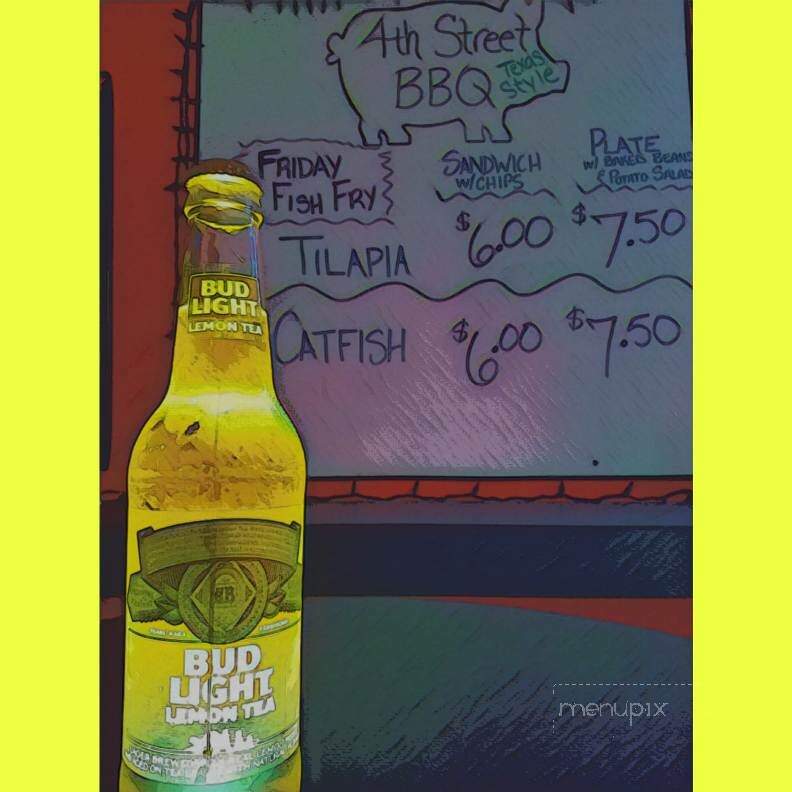 4th Street
BBQ
Texas
Style
FRIDAY
FISH FRY
SANDWICH
W/CHIPS
PLATE
W/ BAKED BEANS
& POTATO SALAD
TILAPIA
$6.00
$7.50
CATFISH
$6.00
$7.50
BUD
LIGHT
LEMON TEA
BUD
LIGHT
LEMON TEA
menupix